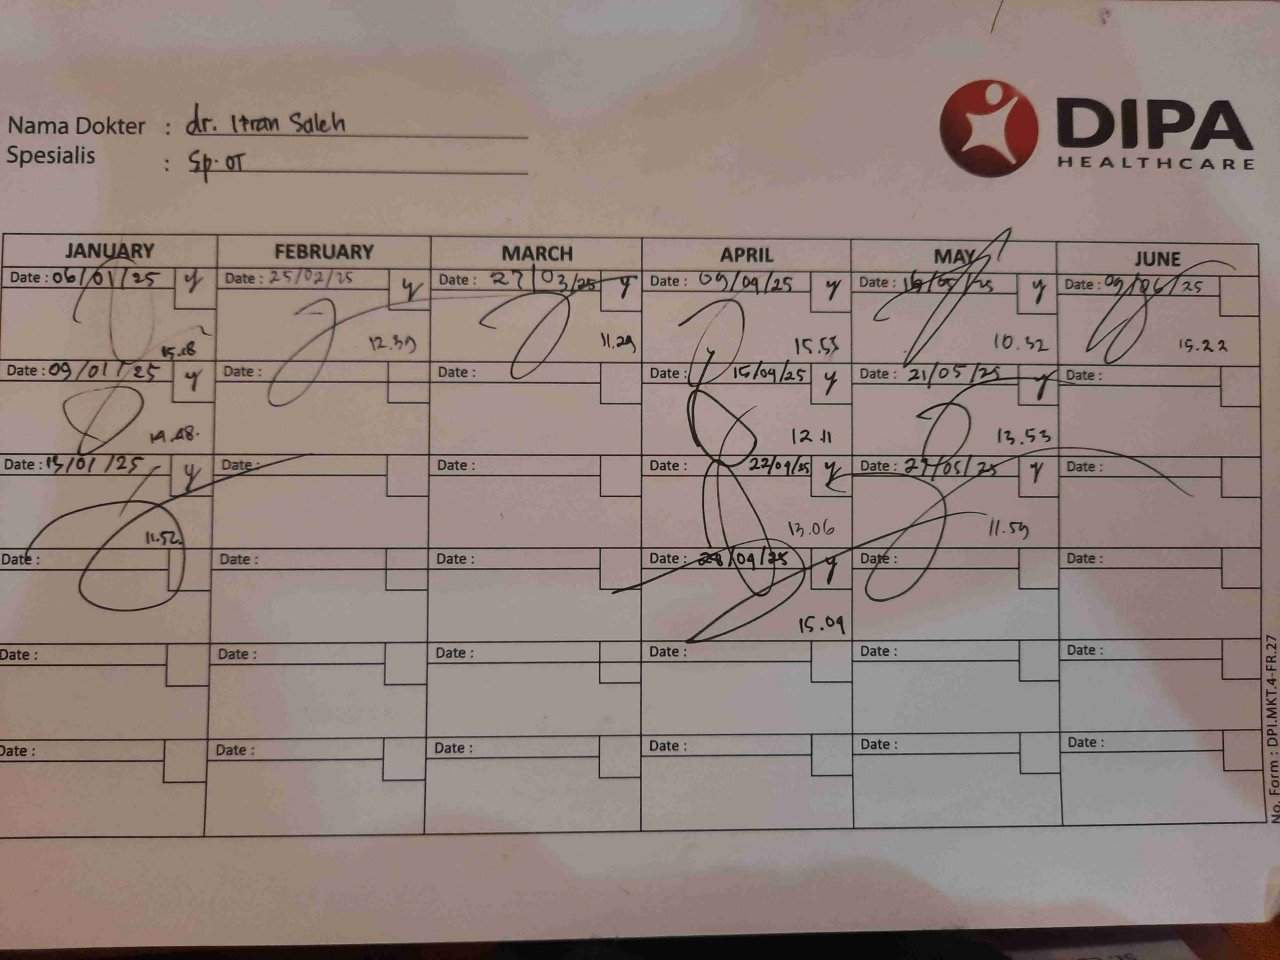 DIPA
HEALTHCARE
Nama Dokter : dr. Itran Saleh
Spesialis : Sp.OT
JANUARY FEBRUARY MARCH APRIL MAY JUNE
Date : 06/01/25 y Date : 25/02/25 y Date : 27/03/25 y Date : 09/04/25 y Date : y Date : 09/06/25
15.18 12.39 11.29 15.53 10.32 15.22
Date : 09/01/25 y Date : Date : Date : 15/04/25 y Date : 21/05/25 y Date :
14.48 12.11 13.53
Date : 13/01/25 y Date : Date : Date : 22/04/25 y Date : 27/05/25 y Date :
11.52 13.06 11.59
Date : Date : Date : Date : 28/04/25 y Date : Date :
15.09
Date : Date : Date : Date : Date : Date :
Date : Date : Date : Date : Date : Date :
No. Form : DPI.MKT.4-FR.27